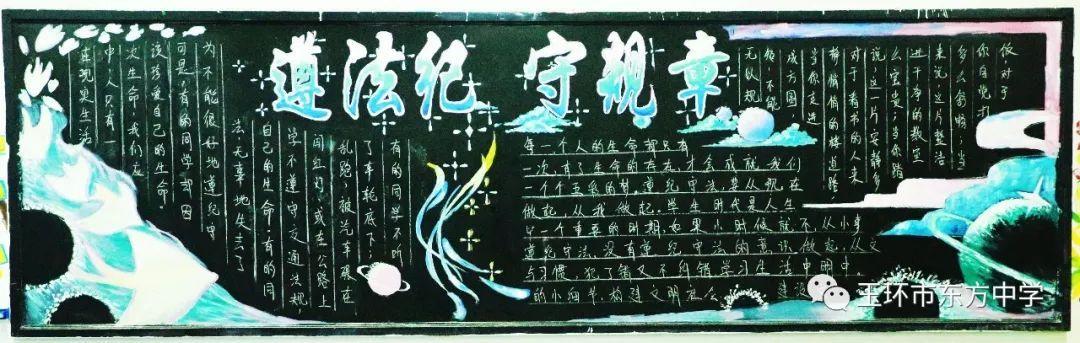 遵法纪 守规章
在现实生活
中,人只有一
次生命,我们应
该珍爱自己的生命,
可是,有的同学却因
为不能很好地遵纪守
法,无辜地失去了
自己的生命,有的同
学不遵守交通法规,
闯红灯,或在公路上
乱跑,被汽车碾在
了车轮底下;
有的同学不听
每一个人的生命都只有
一次,有了生命的存在,才会成就我们
一个个五彩的梦,遵纪守法,要从现在
做起,从我做起,学生时代是人生
一个重要的时期,如果小时候就不从小事
遵纪守法,没有遵纪守法的意识做起,从文
与习惯,犯了错又不纠错学习生活中
的小细节,构建文明社会
无以规
矩,不能
成方圆,
当你走进
静悄悄的
对于看书的人来
说,这一片安静多
么宝贵;当你踏
进干净的教室
来说,这片整洁
多么舒畅;当
你自觉排
对于
玉环市东方中学